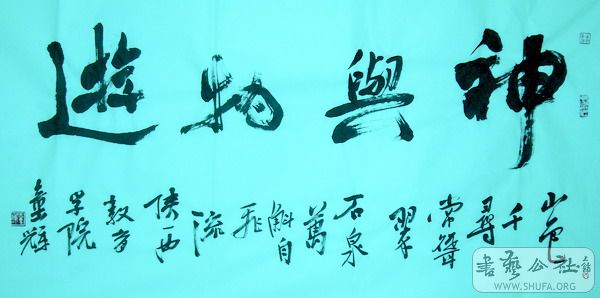 神與物遊
山色
千
尋
常聳
翠
石泉
萬
斛自
飛
流
陝西
教育
学院
童輝
書藝公社
WWW.SHUFA.ORG